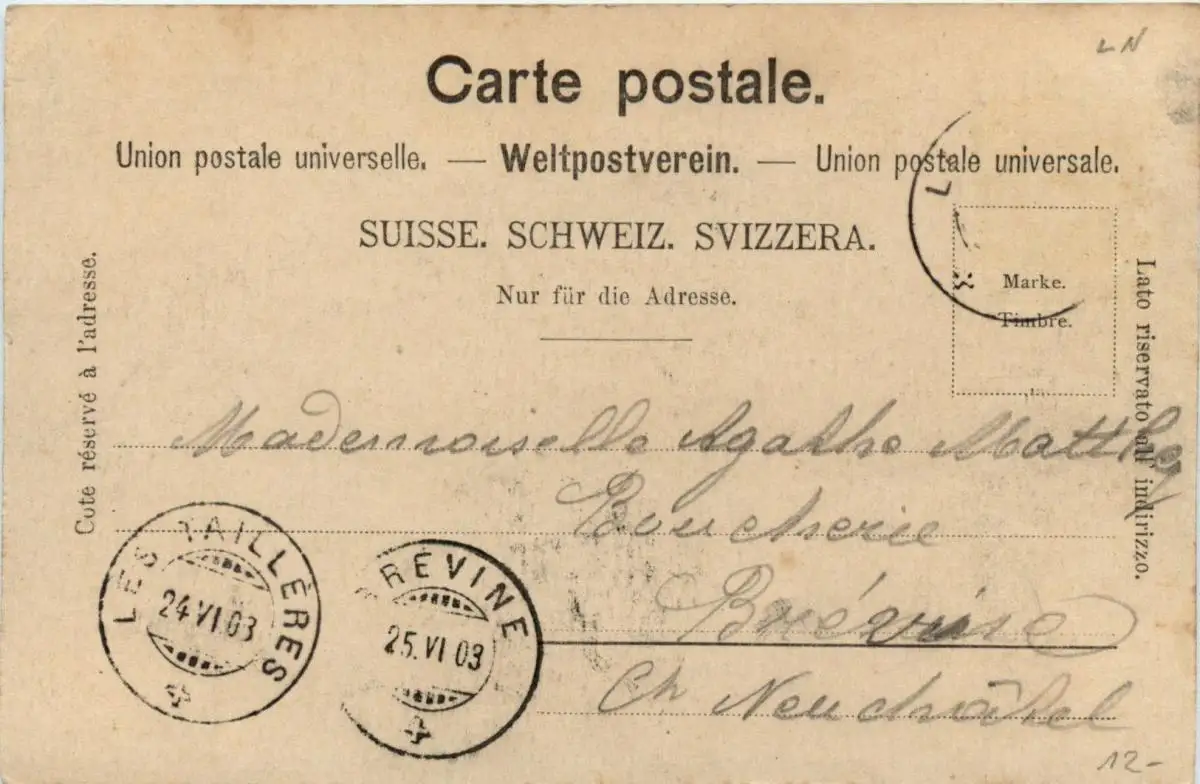 L N
Carte postale.
Union postale universelle. — Weltpostverein. — Union postale universale.
SUISSE. SCHWEIZ. SVIZZERA.
Nur für die Adresse.
Marke.
Timbre.
Cote réservé à l'adresse.
Lato riservato all' indirizzo.
Mademoiselle Agathe Matthey
Boucherie
Brévine
Ch Neuchâtel
LES TAILLÈRES
24 VI 03
RÉVINE
25. VI 03
L
12-